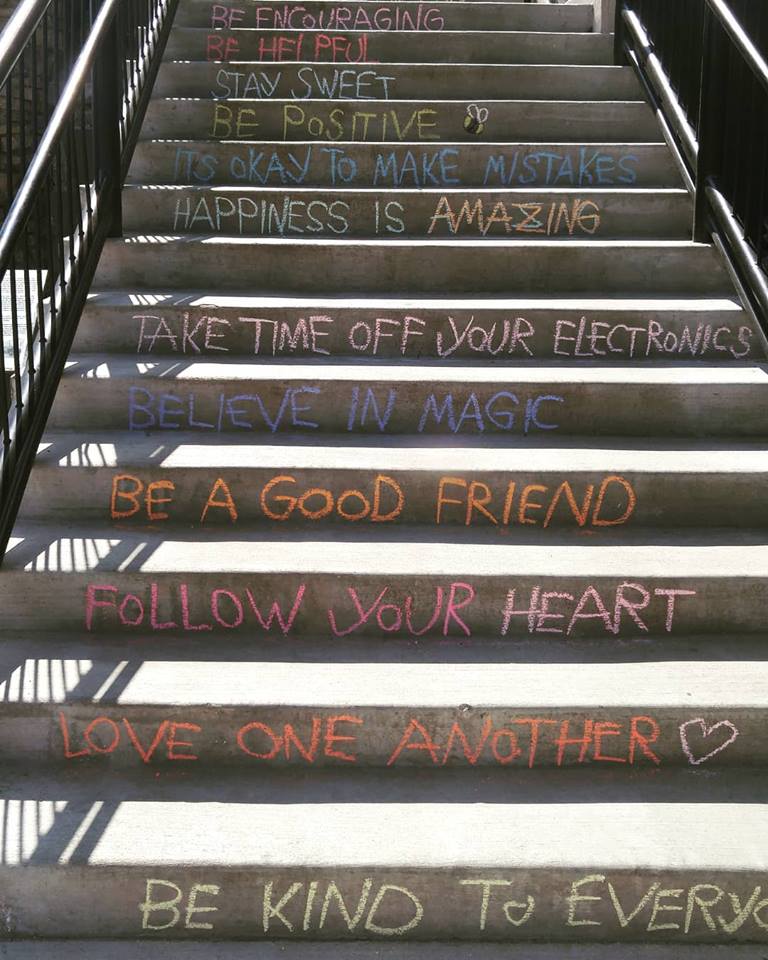 BE ENCOURAGING
BE HELPFUL
STAY SWEET
BE POSITIVE
ITS OKAY TO MAKE MISTAKES
HAPPINESS IS AMAZING
TAKE TIME OFF YOUR ELECTRONICS
BELIEVE IN MAGIC
BE A GOOD FRIEND
FOLLOW YOUR HEART
LOVE ONE ANOTHER
BE KIND TO